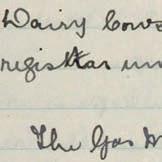 Dairy Cows
registrar un
The Gas M